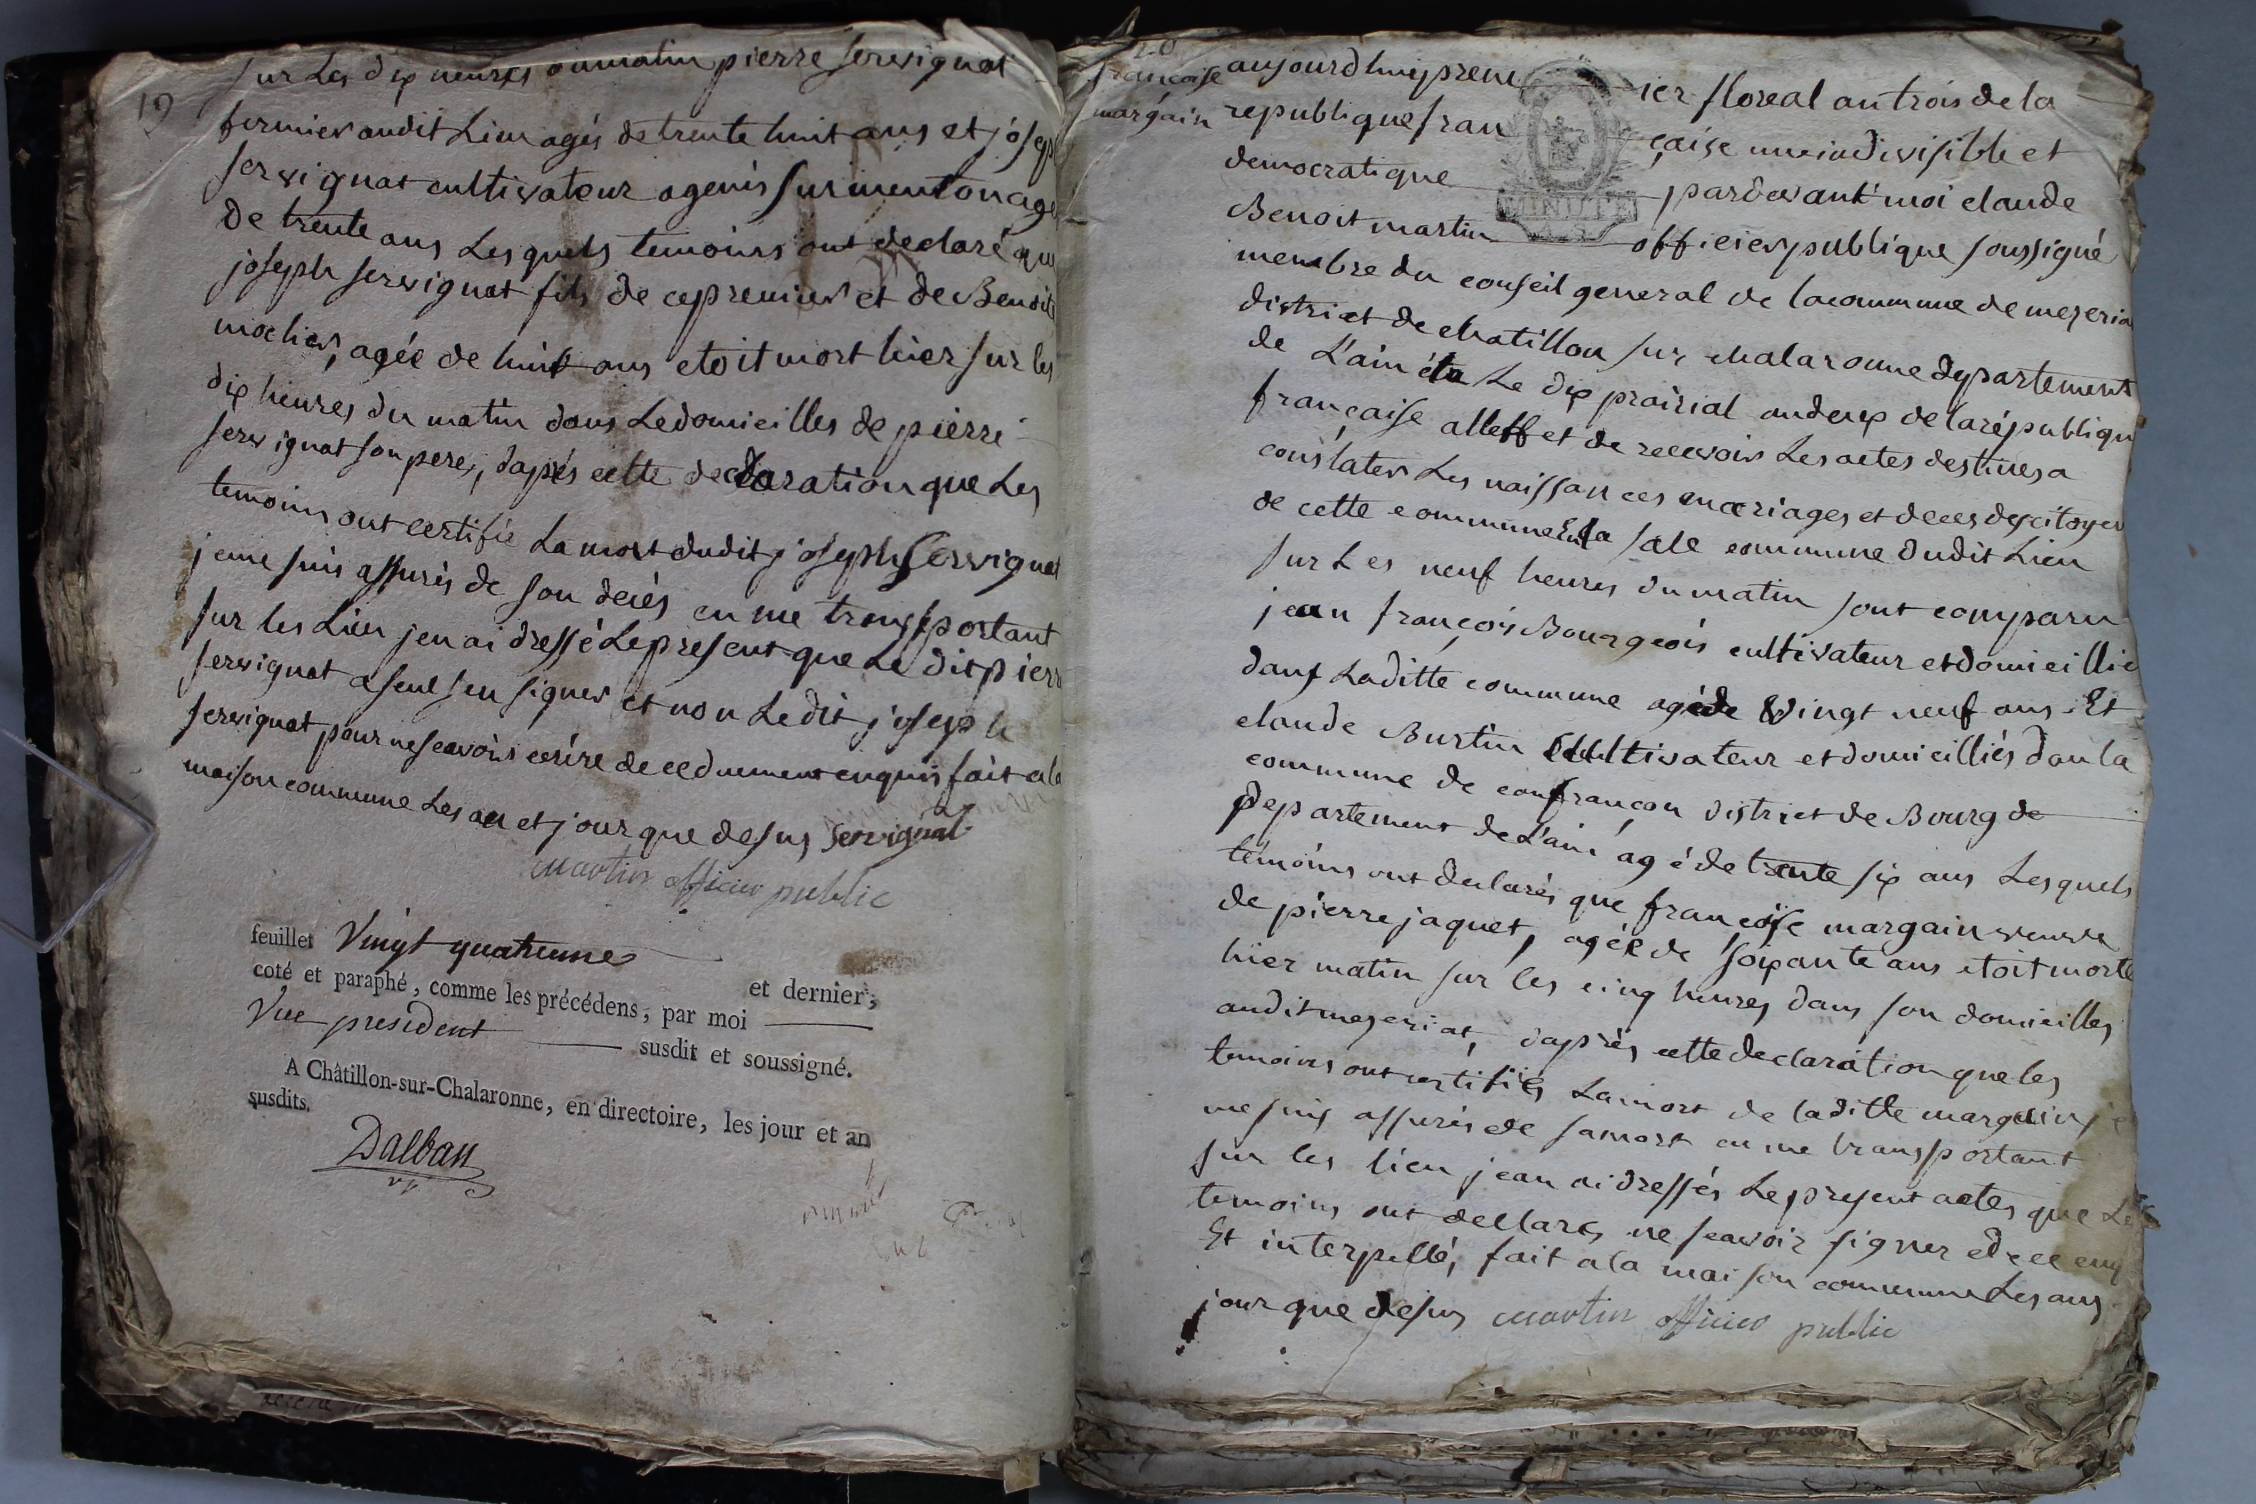 19
sur Les dix heures du matin pierre servignat
fermier audit Lieu agés de trente huit ans et josep
servignat cultivateur agenis sur menton agé
de trente ans Lesquels temoins ont declaré que
joseph servignat fils de ce premier et de Benoite
mochier, agée de huit ans etoit mort hier sur les
dix heures du matin dans Le domicilles de pierre
servignat son pere, dapés cette declaration que Les
temoins ont certifié La mort dudit joseph Servignat
jeme suis assurés de son decés en me transportant
sur les Lieu jen ai dressé Le present que Le dit pierr
servignat a seul seu signer et non Ledit joseph
servignat pour ne scavoir ecrire de ce duement enquis fait a la
maison commune Les an et jour que desus Servignat
Martin officier public
feuillet Vingt quatrieme
et dernier,
coté et paraphé, comme les précédens, par moi
Vice president susdit et soussigné.
A Châtillon-sur-Chalaronne, en directoire, les jour et an
susdits.
Dalban
20
françoise
margain
aujourdhuy premier floreal an trois de la
republique française une indivisible et
democratique pardevant moi claude
Benoit martin officier publique soussigné
MINUTE
membre du conseil general de la commune de mezeria
district de chatillon sur chalaronne departement
de L'ain élu Le dix prairial an deux de la républiqu
française alleffet de recevoir Les actes destines a
constater Les naissances mariages et deces des citoyen
de cette commune En la sale commune dudit Lieu
sur Les neuf heures du matin sont comparu
jean françois Bourgeois cultivateur et domicillié
dans Laditte commune agé de Vingt neuf ans Et
claude Burtin Cultivateur et domicilliés dan la
commune de confrançon district de Bourg de
Departement de L'ain ágé de trente six ans Lesquels
témoins ont declarés que françoise margain veuve
de pierre jaquet, agée de soixante ans etoit morte
hier matin sur les cinq heures dans son domicilles
audit mezeriat, daprés cette declaration que les
temoins ont certifiés La mort de laditte margain je
me suis assurés de sa mort en me transportant
sur les lieu jean ai dressés Le present actes que Le
temoins ont declarés ne scavoir signer et de ce enq
Et interpellé, fait a la maison commune Les ans
jour que desus Martin officier public